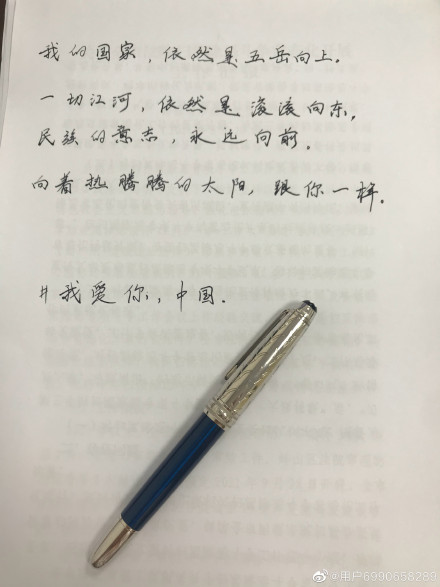 我的国家，依然是五岳向上。
一切江河，依然是滚滚向东，
民族的意志，永远向前，
向着热腾腾的太阳，跟你一样。
#我爱你，中国.
@用户6990658289